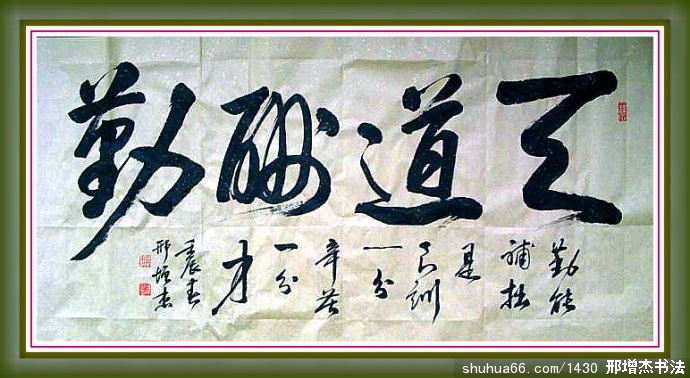 天道酬勤
勤能
補拙
是
良訓
一分
辛苦
一分
才
壬辰春
邢增杰
shuhua66.com/1430 邢增杰书法